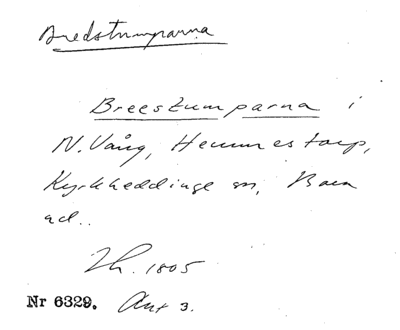 Bredstumparna
Breestumparna i
N. Vång, Hemmestorp,
Kyrkheddinge sn, Bara
ad..
Zh. 1805
Nr 6329. Akt 3.